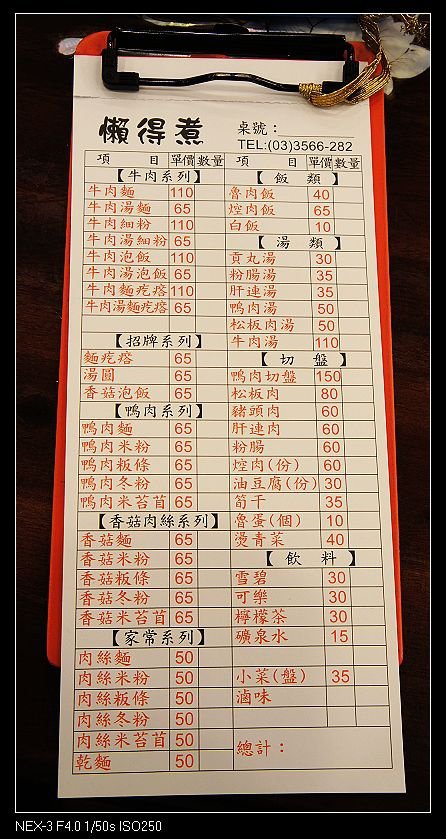 懶得煮
桌號：
TEL:(03)3566-282
項 目 單價 數量
【牛肉系列】
牛肉麵 110
牛肉湯麵 65
牛肉細粉 110
牛肉湯細粉 65
牛肉泡飯 110
牛肉湯泡飯 65
牛肉麵疙瘩 110
牛肉湯麵疙瘩 65
【招牌系列】
麵疙瘩 65
湯圓 65
香菇泡飯 65
【鴨肉系列】
鴨肉麵 65
鴨肉米粉 65
鴨肉粄條 65
鴨肉冬粉 65
鴨肉米苔苜 65
【香菇肉絲系列】
香菇麵 65
香菇米粉 65
香菇粄條 65
香菇冬粉 65
香菇米苔苜 65
【家常系列】
肉絲麵 50
肉絲米粉 50
肉絲粄條 50
肉絲冬粉 50
肉絲米苔苜 50
乾麵 50
項 目 單價 數量
【飯 類】
魯肉飯 40
焢肉飯 65
白飯 10
【湯 類】
貢丸湯 30
粉腸湯 35
肝連湯 35
鴨肉湯 50
松板肉湯 50
牛肉湯 110
【切 盤】
鴨肉切盤 150
松板肉 80
豬頭肉 60
肝連肉 60
粉腸 60
焢肉(份) 60
油豆腐(份) 30
筍干 35
魯蛋(個) 10
燙青菜 40
【飲 料】
雪碧 30
可樂 30
檸檬茶 30
礦泉水 15
小菜(盤) 35
滷味
總計：
NEX-3 F4.0 1/50s ISO250